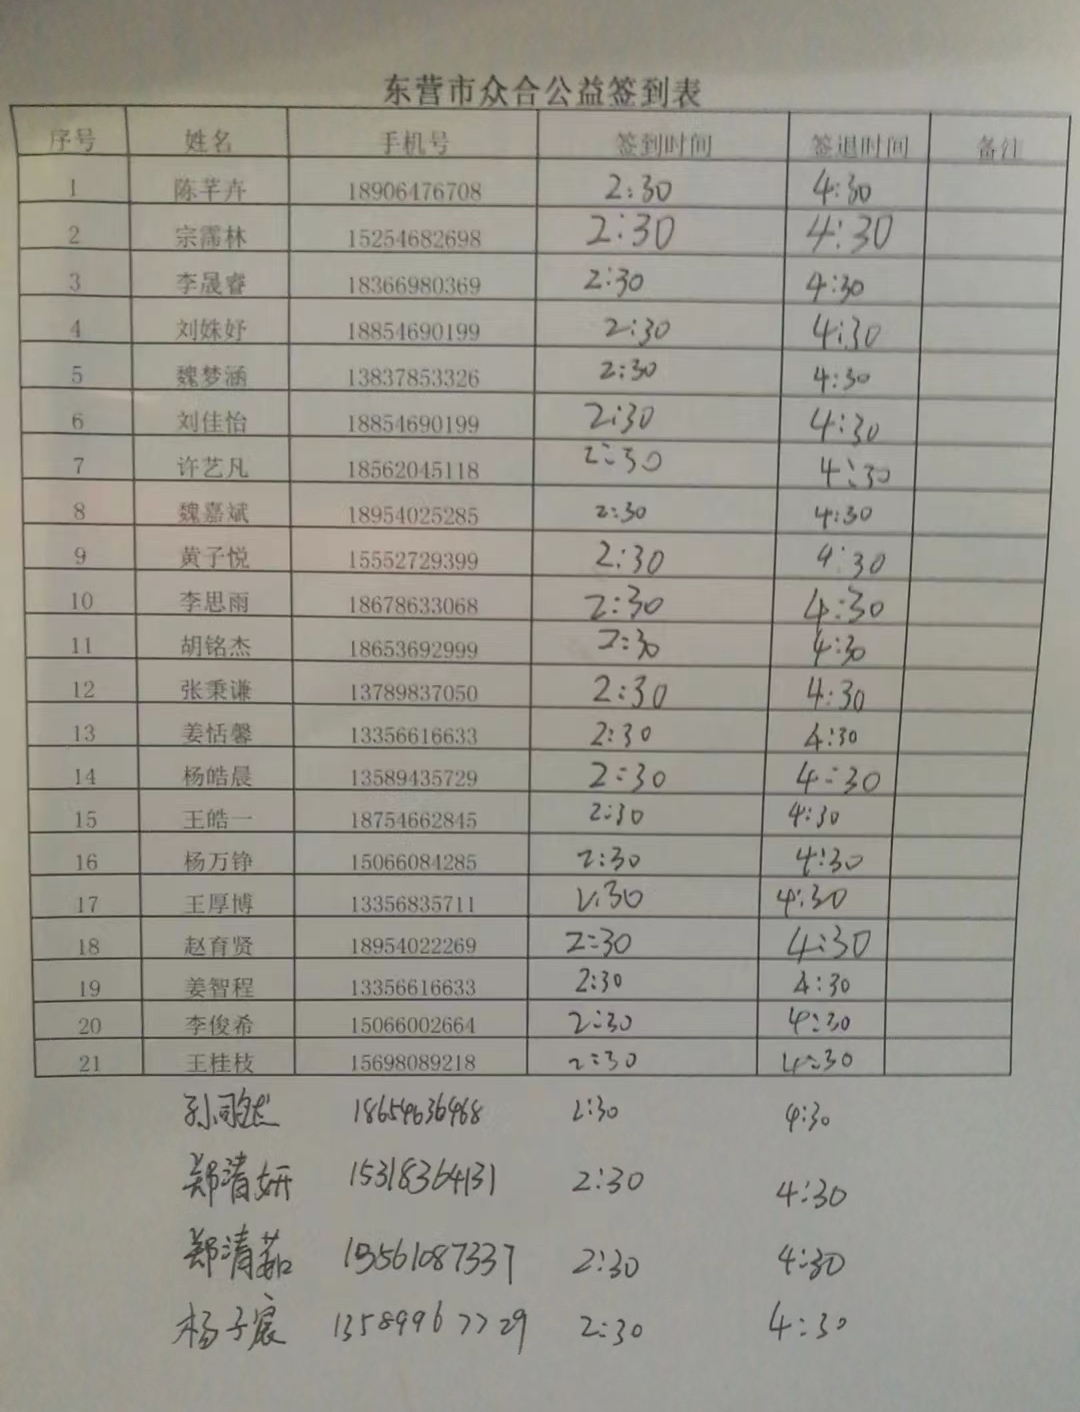 东营市众合公益签到表
序号 姓名 手机号 签到时间 签退时间 备注
1 陈芊卉 18906476708 2:30 4:30
2 宗霈林 15254682698 2:30 4:30
3 李晟睿 18366980369 2:30 4:30
4 刘姝妤 18854690199 2:30 4:30
5 魏梦涵 13837853326 2:30 4:30
6 刘佳怡 18854690199 2:30 4:30
7 许艺凡 18562045118 2:30 4:30
8 魏嘉斌 18954025285 2:30 4:30
9 黄子悦 15552729399 2:30 4:30
10 李思雨 18678633068 2:30 4:30
11 胡铭杰 18653692999 2:30 4:30
12 张秉谦 13789837050 2:30 4:30
13 姜恬馨 13356616633 2:30 4:30
14 杨皓晨 13589435729 2:30 4:30
15 王皓一 18754662845 2:30 4:30
16 杨万铮 15066084285 2:30 4:30
17 王厚博 13356835711 2:30 4:30
18 赵育贤 18954022269 2:30 4:30
19 姜智程 13356616633 2:30 4:30
20 李俊希 15066002664 2:30 4:30
21 王桂枝 15698089218 2:30 4:30
18654636468 2:30 4:30
郑清妍 15318364131 2:30 4:30
郑清茹 15561087337 2:30 4:30
杨子宸 13589967729 2:30 4:30